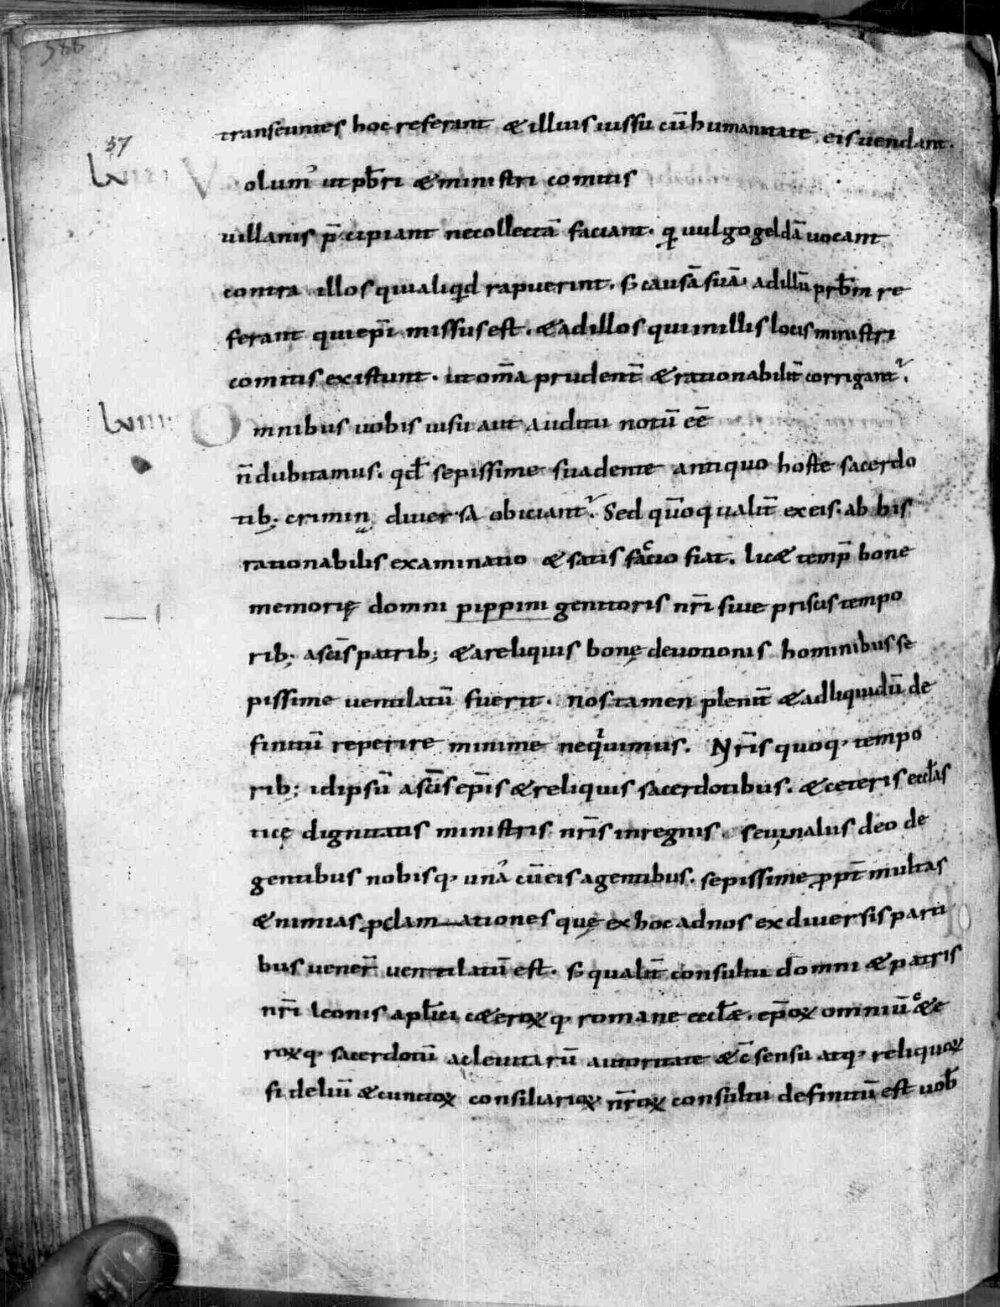 588
transeuntes hoc referant & illius iussu cū humanitate eis uendant.
37
lvii Volumꝰ ut pb̄ri & ministri comitis
uillanis p̄cipiant ne collectā faciant. q̄ uulgo geldā uocant
contra illos qui aliqid rapuerint. s; causā suā adillū prb̄m re
ferant qui ep̄i missus est. & adillos qui inillis locis ministri
comitis existunt. ut om̄a prudent̄ & rationabilit̄ corrigant᷑.
lviii Omnibus uobis uisu aut auditu notū eē
n̄ dubitamus. qd̄ sepissime suadente antiquo hoste sacerdo
tib; crimina diuersa obiciant᷑. Sed qūo qualit̄ ex eis. ab his
rationabilis examinatio & satisfactio fiat. lic& temp̄ bone
memorię domni pippini genitoris nr̄i siue priscis tempo
rib; a sc̄is patrib; & a reliquis bonę deuotionis hominibus se
pissime uentilatū fuerit. nos tamen plenit̄ & adliquidū de
finitū reperire minime nequimus. Nr̄is quoq; tempo
rib; idipsū a sc̄is ep̄is & reliquis sacerdotibus. & ceteris eccl̄as
ticę dignitatis ministris nr̄is inregnis. seu malus deo de
gentibus nobisq; unā cū eis agentibus. sepissime ppt̄ multas
& nimias pclamationes quę ex hoc ad nos ex diuersis parti
bus uener̄ uentilatū est. s; qualit̄ consultu domni & patris
nr̄i leonis apl̄ici c&eroꝝq; romane eccl̄ę. ep̄oꝝ omniū & ce
roꝝq; sacerdotū ac leuitarū autoritate & c̄sensu atq; reliquoꝝ
fideliū & cunctoꝝ consiliarioꝝ nr̄oꝝ consultu definitū est uob̄